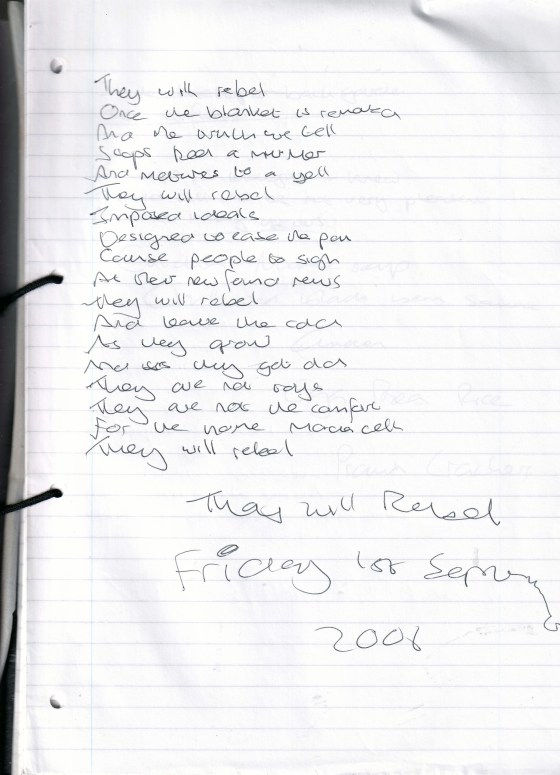 They will rebel
Once the blanket is removed
And the which we cell
from a murmur
And matures to a yell
They will rebel
Imposed ideals
Designed to ease the pain
Cause people to sigh
At their new found news
They will rebel
And leave the
As they grow
And as they get old
They are not toys
They are not the comfort
For the name
They will rebel
They will Rebel
Friday 1st September
2006